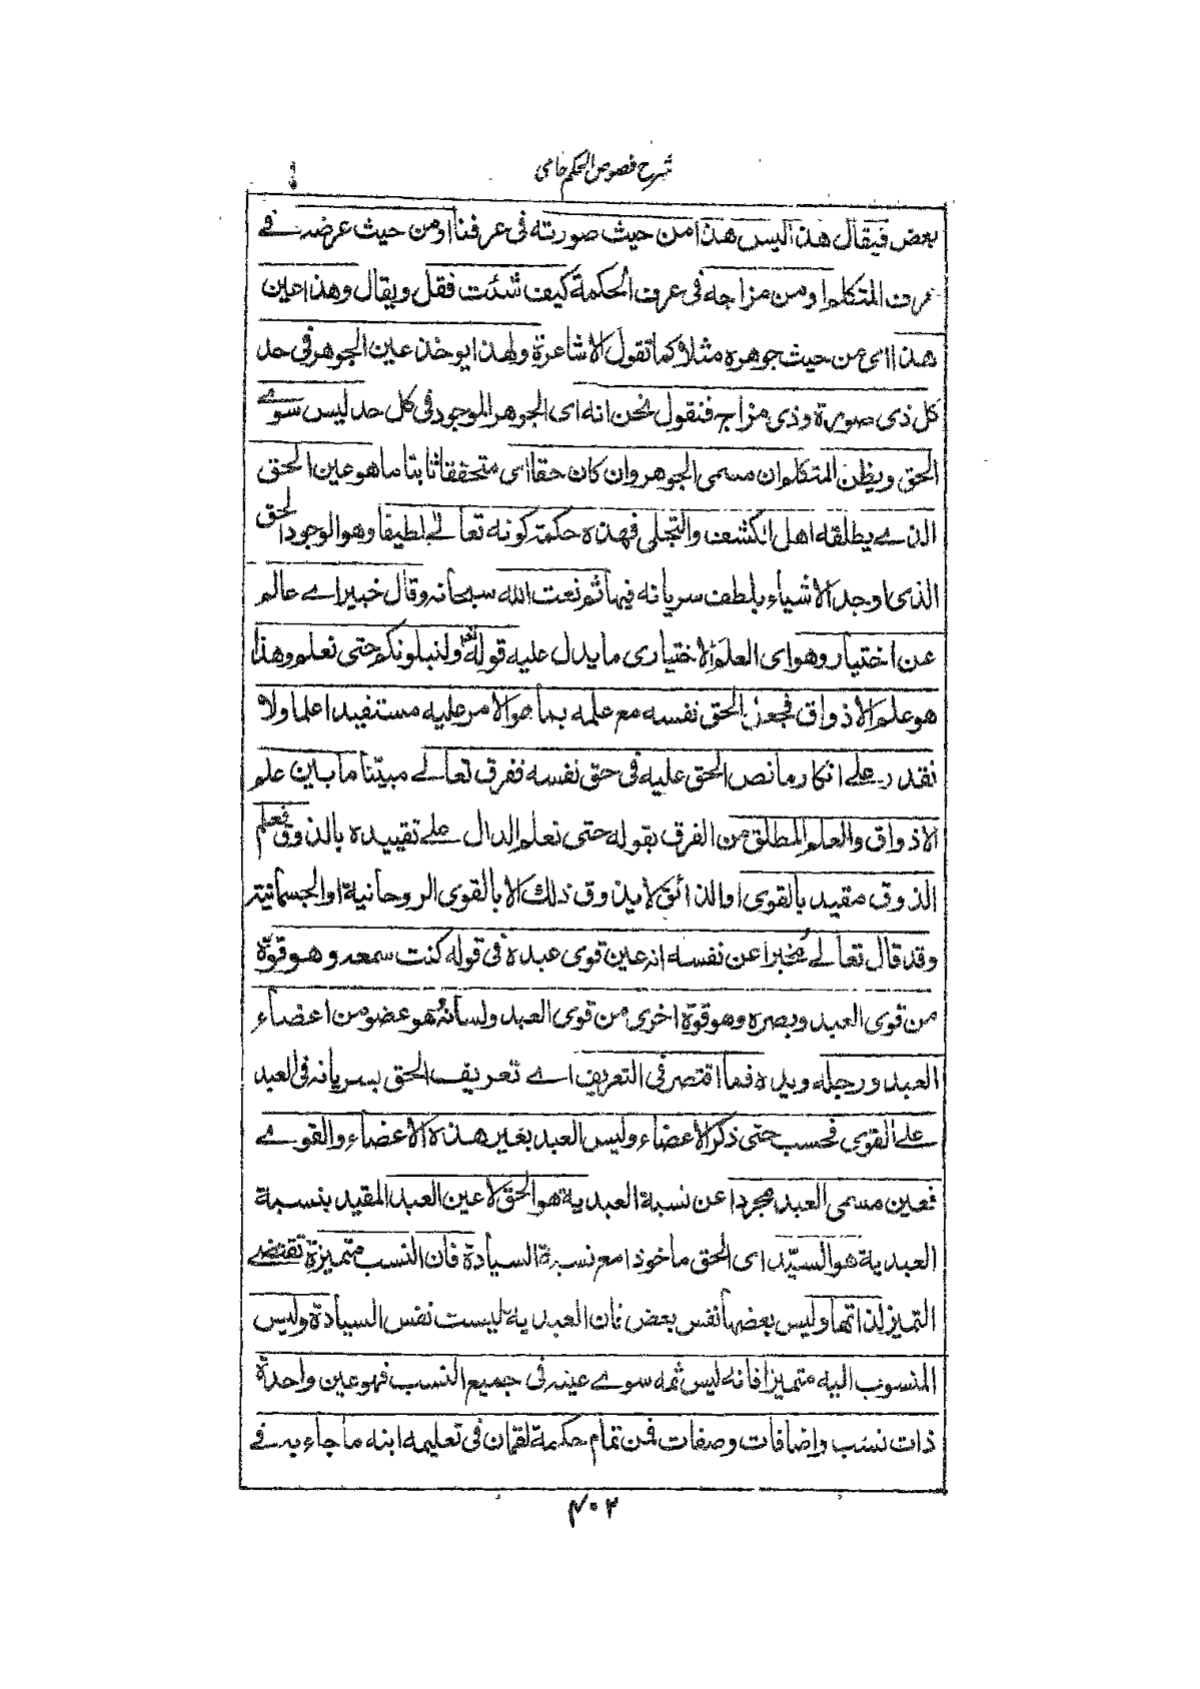 شرح فصوص الحكم جامى
بعض فيقال هذا ليس هذا من حيث صورته فى عرفنا او من حيث عرضه فے
عرف المتكلم او من مزاجه فى عرف الحكمة كيف شئت فقل ويقال وهذا عين
هذا اى من حيث جوهره مثلا كما تقول الاشاعرة ولهذا يوخذ عين الجوهر فى حد
كل ذى صورة وذى مزاج فنقول نحن انه اى الجوهر الموجود فى كل حد ليس سوے
الحق ويظن المتكلم ان مسمى الجوهر وان كان حقا اى متحققا ثابتا ما هو عين الحق
الذے يطلقه اهل الكشف والتجلى فهذه حكمة كونه تعالے لطيفا وهو الوجود الحق
الذى اوجد الاشياء بلطف سريانه فيها ثم نعت الله سبحانه وقال خبيرا اے عالم
عن اختيار وهو اى العلم الاختيارى ما يدل عليه قوله ولنبلونكم حتى نعلم وهذا
هو علم الاذواق فجعل الحق نفسه مع علمه بما هو الامر عليه مستفيدا علما ولا
نقدر علے انكار ما نص الحق عليه فى حق نفسه ففرق تعالے مبيّنا ما بين علم
الاذواق والعلم المطلق من الفرق بقوله حتى نعلم الدال علے تقييده بالذوق فعلم
الذوق مقيد بالقوى اوالذائق لا يذوق ذلك الا بالقوى الروحانية او الجسمانية
وقد قال تعالے مخبرا عن نفسه انه عين قوى عبده فى قوله كنت سمعه وهو قوّة
من قوى العبد وبصره وهو قوة اخرى من قوى العبد ولسانه هو عضو من اعضاء
العبد ورجله ويده فما اقتصر فى التعريف اے تعريف الحق بسريانه فى العبد
علے القوى فحسب حتى ذكر الاعضاء وليس العبد بغير هذه الاعضاء والقوے
فعين مسمى العبد مجردا عن نسبة العبدية هو الحق لا عين العبد المقيد بنسبة
العبدية هو السيّد اى الحق ماخوذا مع نسبة السيادة فان النسب متميزة تقتضے
التميز لذاتها وليس بعضها نفس بعض فان العبدية ليست نفس السيادة وليس
المنسوب اليه متميزا فانه ليس ثمه سوے عينه فى جميع النسب فهو عين واحدة
ذات نسب واضافات وصفات فمن تمام حكمة لقمان فى تعليمه ابنه ما جاء به فے
۴۰۳